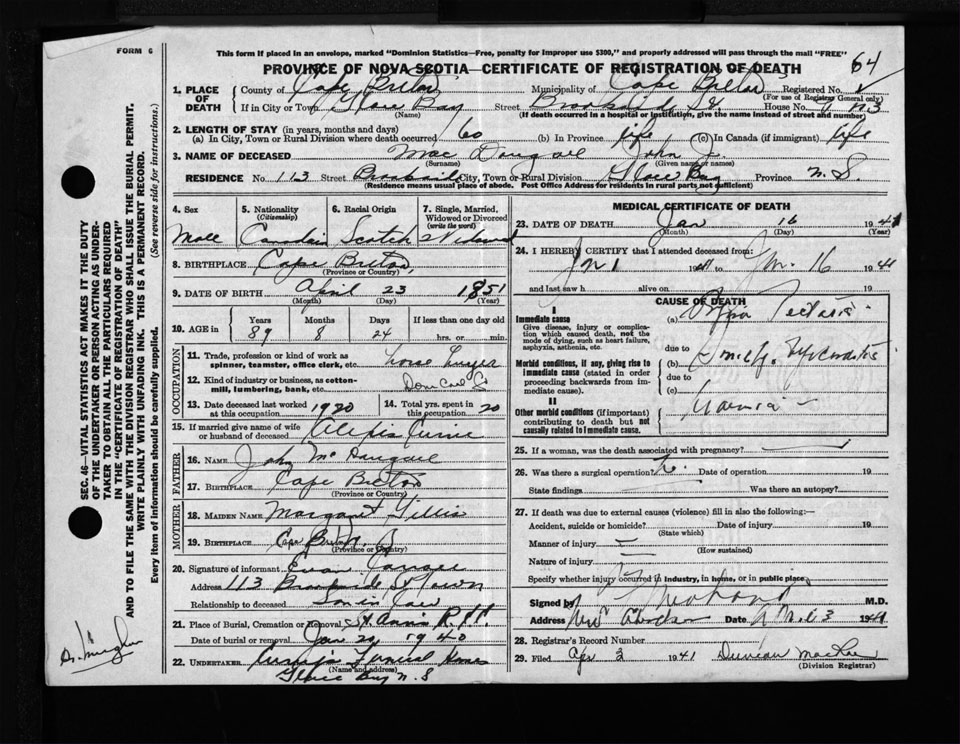 FORM 6
This form if placed in an envelope, marked "Dominion Statistics—Free, penalty for improper use $300," and properly addressed will pass through the mail "FREE"
64
PROVINCE OF NOVA SCOTIA—CERTIFICATE OF REGISTRATION OF DEATH
1. PLACE OF DEATH
County of Cape Breton Municipality of Cape Breton Registered No.
(For use of Registrar General only)
If in City or Town Glace Bay Street Brookside St. House No. 113
(Name) (If death occurred in a hospital or institution, give the name instead of street and number)
2. LENGTH OF STAY (in years, months and days)
(a) In City, Town or Rural Division where death occurred 60 (b) In Province life (c) In Canada (if immigrant) life
3. NAME OF DECEASED Mac Dougall John J.
(Surname) (Given name or names)
RESIDENCE No. 113 Street Brookside City, Town or Rural Division Glace Bay Province N. S.
(Residence means usual place of abode. Post Office Address for residents in rural parts not sufficient)
4. Sex 5. Nationality (Citizenship) 6. Racial Origin 7. Single, Married, Widowed or Divorced (write the word)
Male Canadian Scotch Widowed
8. BIRTHPLACE Cape Breton
(Province or Country)
9. DATE OF BIRTH April 23 1851
(Month) (Day) (Year)
10. AGE in Years Months Days If less than one day old
89 8 24 hrs. or min.
OCCUPATION
11. Trade, profession or kind of work as spinner, teamster, office clerk, etc.
12. Kind of industry or business, as cotton-mill, lumbering, bank, etc. Dom Coal Co
13. Date deceased last worked at this occupation 1920 14. Total yrs. spent in this occupation 20
15. If married give name of wife or husband of deceased Currie
FATHER
16. NAME John McDougall
17. BIRTHPLACE Cape Breton
(Province or Country)
MOTHER
18. MAIDEN NAME Margaret Gillis
19. BIRTHPLACE Cape Breton N. S
(Province or Country)
20. Signature of informant
Address 113 Brookside St Town
Relationship to deceased Son in law
21. Place of Burial, Cremation or Removal St. Anns
Date of burial or removal Jan 20 1940
22. UNDERTAKER Funeral Home
(Name and address)
Glace Bay N. S
MEDICAL CERTIFICATE OF DEATH
23. DATE OF DEATH Jan 16 1941
(Month) (Day) (Year)
24. I HEREBY CERTIFY that I attended deceased from:
Jn 1 1941 Jn. 16 1941
and last saw h alive on 19
CAUSE OF DEATH
I
Immediate cause
Give disease, injury or complication which caused death, not the mode of dying, such as heart failure, asphyxia, asthenia, etc.
(a)
due to
Morbid conditions, if any, giving rise to immediate cause (stated in order proceeding backwards from immediate cause).
(b) Myocarditis
due to
(c)
II
Other morbid conditions (if important) contributing to death but not causally related to immediate cause.
25. If a woman, was the death associated with pregnancy?
26. Was there a surgical operation? No. Date of operation 19
State findings Was there an autopsy?
27. If death was due to external causes (violence) fill in also the following:—
Accident, suicide or homicide? Date of injury 19
(State which)
Manner of injury
(How sustained)
Nature of injury
Specify whether injury occurred in industry, in home, or in public place
Signed by M.D.
Address New Aberdeen Date 3 1941
28. Registrar's Record Number
29. Filed Apr 3 1941 Duncan MacRae
(Division Registrar)
SEC. 46—VITAL STATISTICS ACT MAKES IT THE DUTY
OF THE UNDERTAKER OR PERSON ACTING AS UNDER-
TAKER TO OBTAIN ALL THE PARTICULARS REQUIRED
IN THE "CERTIFICATE OF REGISTRATION OF DEATH"
AND TO FILE THE SAME WITH THE DIVISION REGISTRAR WHO SHALL ISSUE THE BURIAL PERMIT.
WRITE PLAINLY WITH UNFADING INK. THIS IS A PERMANENT RECORD.
Every item of information should be carefully supplied.
(See reverse side for instructions.)